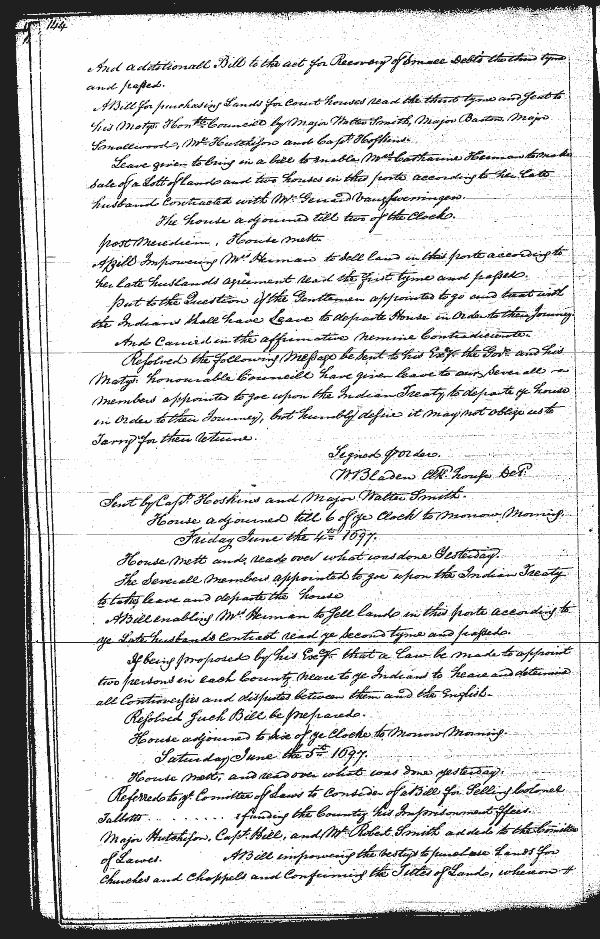 144
And additionall Bill to the act for Recovery of Small Debts the third tyme
and passed.
A Bill for purchasing Lands for Court houses read the third tyme and Sent to
his Matys. Honble Councill by Major Walter Smith, Major Barton, Major
Smallwood, Mr. Hutchison and Capt. Hoskins.
Leave given to bring in a bill to enable Mrs. Catharine Herman to make
Sale of a Lott of Land and two houses in this porte according to her Late
husband Contracted with Mr. Gerrard Vansweeringen.
The house adjourned till two of the Clock.
post Meridiem, House mett.
A Bill Impowering Mrs. Herman to Sell land in this porte according to
her late husbands agreement read the first tyme and passed.
Put to the Question if the Gentlemen appointed to go and treat with
the Indians shall have Leave to departe House in Order to their Journey.
And Carried in the affirmative Nemine Contradicente.
Resolved the following Message be Sent to his Exy. the Govr. and his
Matys. honourable Councill have given leave to our Severall
members appointed to goe upon the Indian Treaty to departe ye house
in Order to their Journey, but humbly desire it may not oblige us to
Tarry for their returne.
Signed p Order.
W Bladen Clk house Del.
Sent by Capt. Hoskins and Major Walter Smith.
House adjourned till 6 of ye Clock to Morrow Morning.
Friday June the 4th 1697.
House Mett and, read over what was done Yesterday.
The Severall members appointed to goe upon the Indian Treaty
to take leave and departe the house
A Bill enabling Mrs. Herman to Sell land in this porte according to
ye Late husbands Contract read ye Second tyme and passed.
If being proposed by his Exy. that a Law be made to appoint
two persons in each County neare to ye Indians to heare and determine
all Controversies and disputes between them and the English.
Resolved Such Bill be prepared.
House adjourned to Six of ye Clocke to Morrow Morning.
Saturday June the 5th 1697.
House mett, and read over what was done yesterday.
Referred to ye Comittee of Laws to Consider of a Bill for Selling Colonel
Talbotts . . . . . . . . funding the County his Imprisonment ffees.
Major Hutchison, Capt. Hill, and Mr. Robert Smith added to the Comittee
of Lawes. A Bill impowering the vestrys to purchase Lands for
Churches and Chappels and Confirming the Titles of Land, whereon